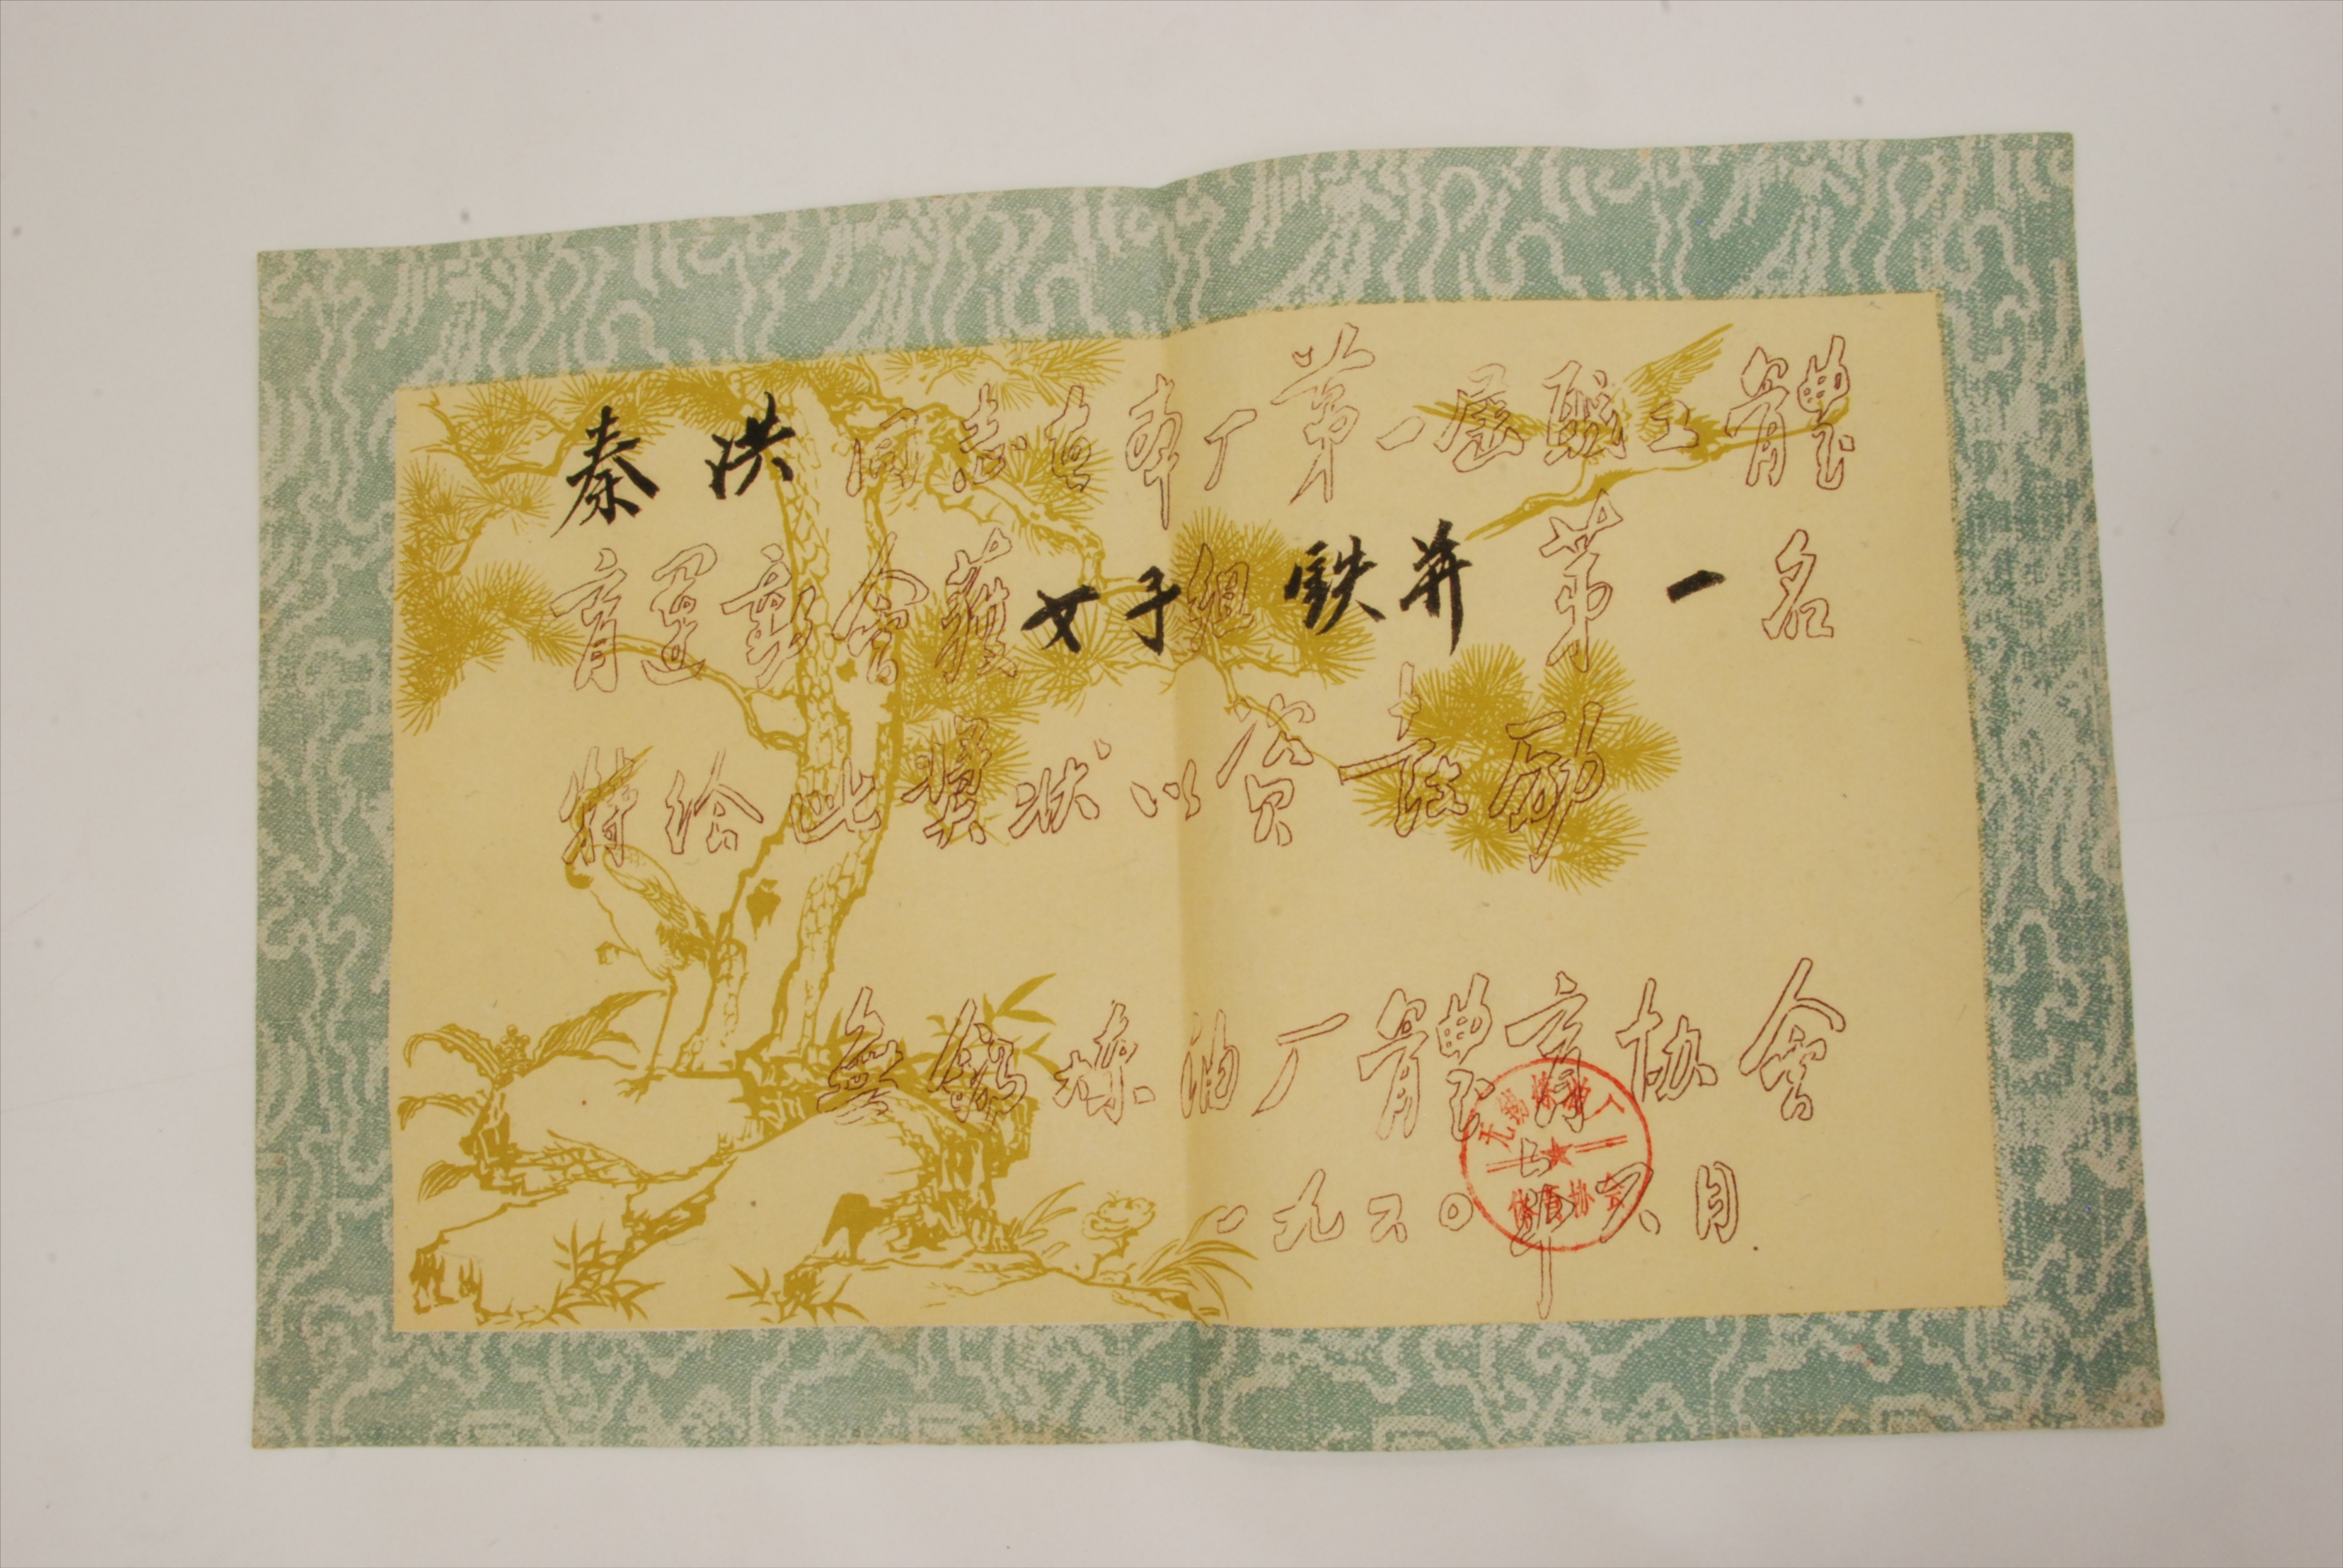 秦洪同志在本厂第一届职工體
育運動会獲女子组铁并第一名
特给此奖状以资鼓励
無錫炼油厂體育协會
一九六〇年六月
无锡炼油厂
体育协会